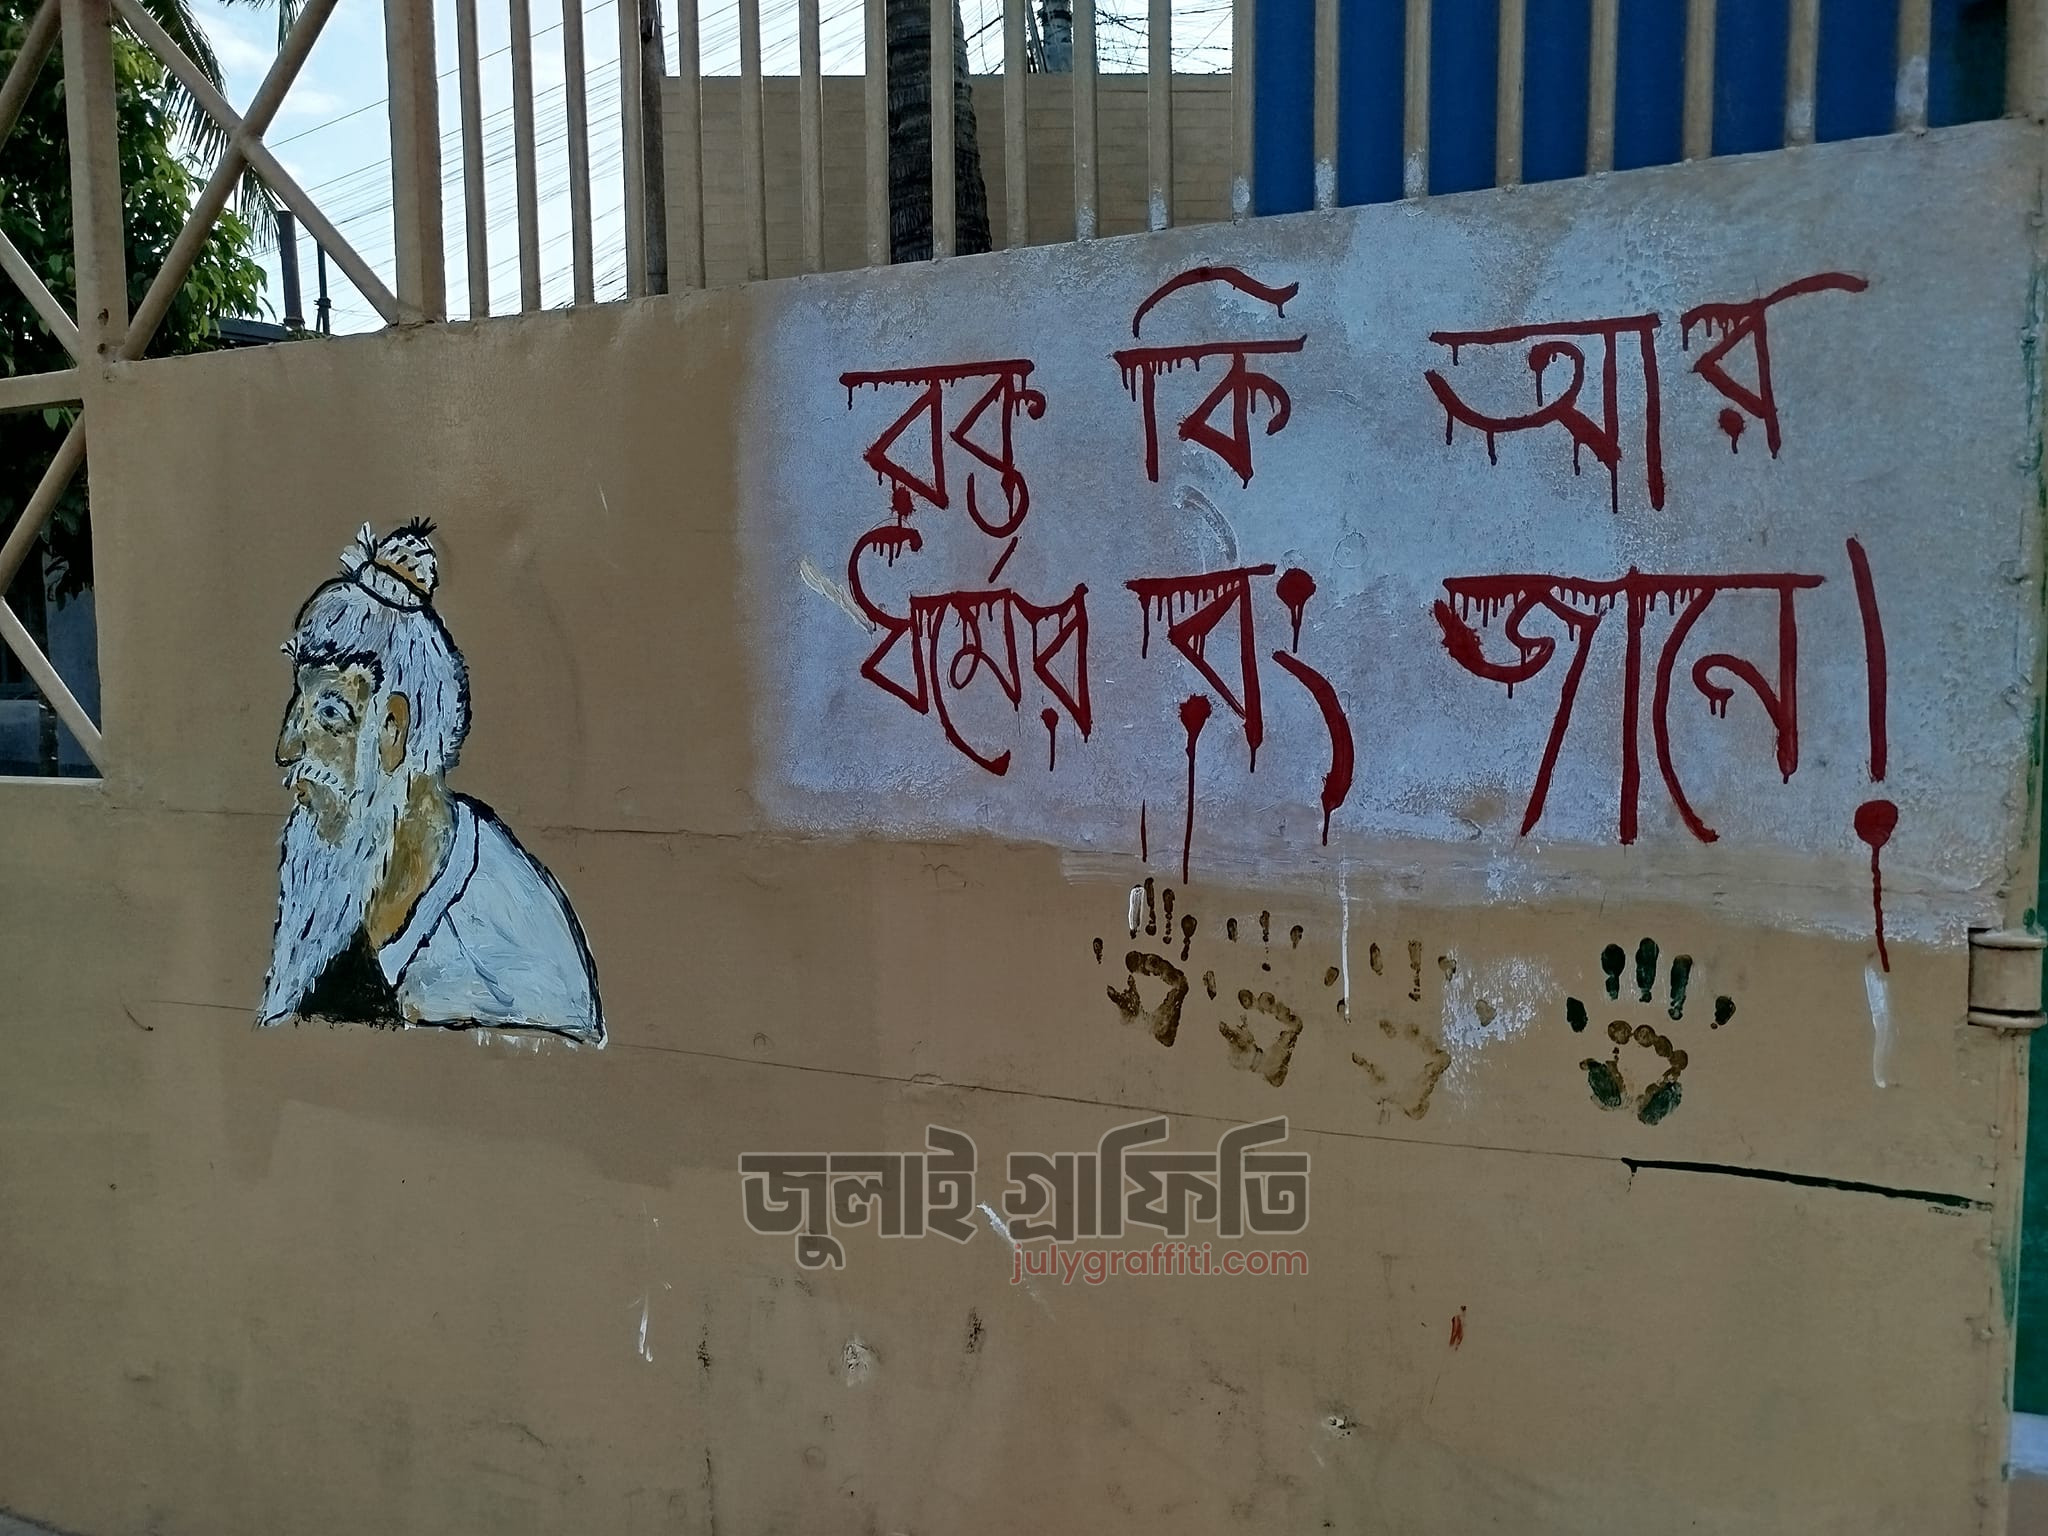 রক্ত কি আর
ধর্মের রং জানে!
জুলাই গ্রাফিতি
julygraffiti.com